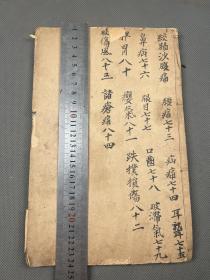 絞腸沙腹痛 腰痛七十三 疝痛七十四 耳聾七十五
鼻病七十六 眼目七十七 口齒七十八 破滯氣七十九
脾胃八十 癭氣八十一 跌撲損傷八十二
破傷風八十三 諸瘡痛八十四